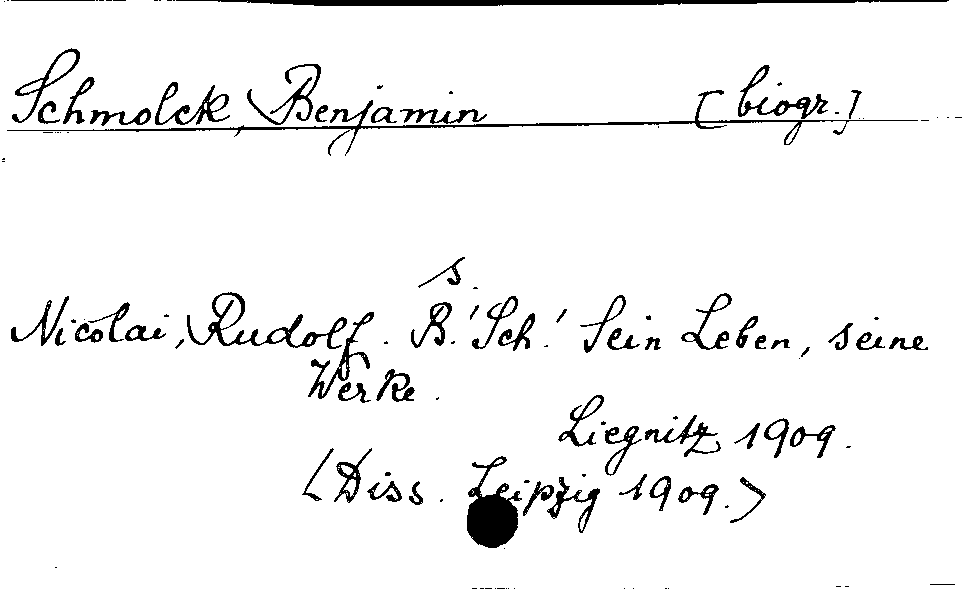 Schmolck, Benjamin [biogr.]
s.
Nicolai, Rudolf. B.' Sch.' Sein Leben, seine
Werke.
Liegnitz 1909.
<Diss. Leipzig 1909.>